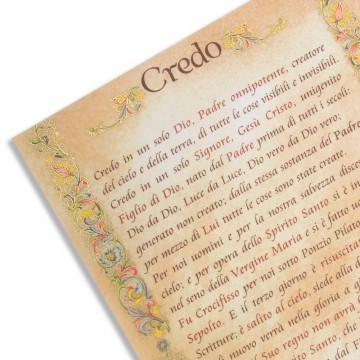 Credo
Credo in un solo Dio, Padre onnipotente, creatore
del cielo e della terra, di tutte le cose visibili e invisibili.
Credo in un solo Signore, Gesù Cristo, unigenito
Figlio di Dio, nato dal Padre prima di tutti i secoli:
Dio da Dio, Luce da Luce, Dio vero da Dio vero,
generato non creato; dalla stessa sostanza del Padre
per mezzo di Lui tutte le cose sono state create.
Per noi uomini e per la nostra salvezza disce
cielo; e per opera dello Spirito Santo si è
nel seno della Vergine Maria e si è fatto
Fu Crocifisso per noi sotto Ponzio Pilato
Sepolto. E il terzo giorno è risuscit
Scritture; è salito al cielo, siede alla d
di nuovo verrà nella gloria a g
Suo regno non avrà
Santo, che